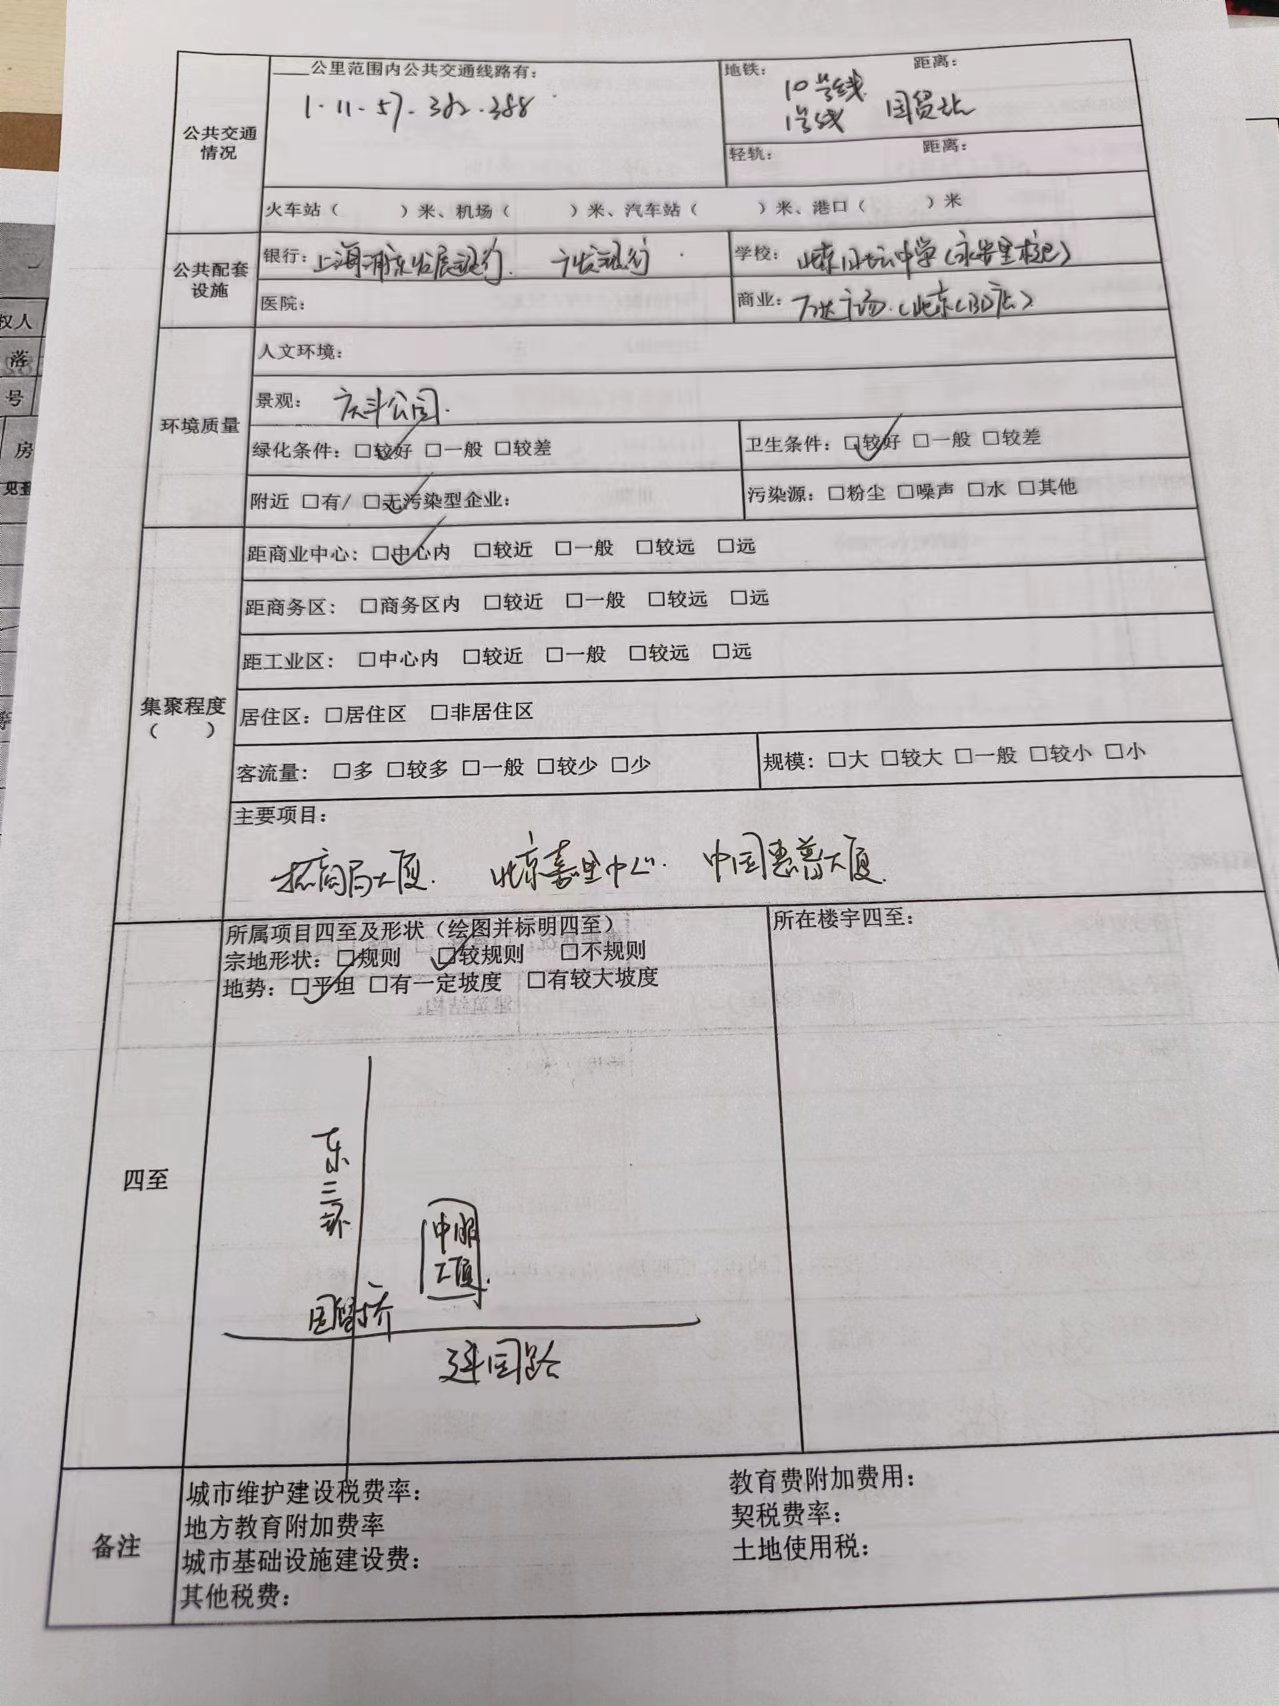 公共交通
情况
____公里范围内公共交通线路有：
1·11·57·382·388
地铁： 距离：
10号线
1号线 国贸站
轻轨： 距离：
火车站（ ）米、机场（ ）米、汽车站（ ）米、港口（ ）米
公共配套
设施
银行：上海浦东发展银行. 广发银行·
学校：北京日坛中学（永安里校区）
医院：
商业：万达广场·（北京CBD店）
环境质量
人文环境：
景观：庆丰公园.
绿化条件：□较好 □一般 □较差
卫生条件：□较好 □一般 □较差
附近 □有/ □无污染型企业：
污染源：□粉尘 □噪声 □水 □其他
集聚程度
（ ）
距商业中心：□中心内 □较近 □一般 □较远 □远
距商务区：□商务区内 □较近 □一般 □较远 □远
距工业区：□中心内 □较近 □一般 □较远 □远
居住区：□居住区 □非居住区
客流量：□多 □较多 □一般 □较少 □少
规模：□大 □较大 □一般 □较小 □小
主要项目：
招商局大厦. 北京嘉里中心. 中国惠普大厦.
四至
所属项目四至及形状（绘图并标明四至）
宗地形状：□规则 □较规则 □不规则
地势：□平坦 □有一定坡度 □有较大坡度
所在楼宇四至：
东三环
中服
大厦.
国贸桥
建国路
备注
城市维护建设税费率：
地方教育附加费率
城市基础设施建设费：
其他税费：
教育费附加费用：
契税费率：
土地使用税：
权人
落
号
房